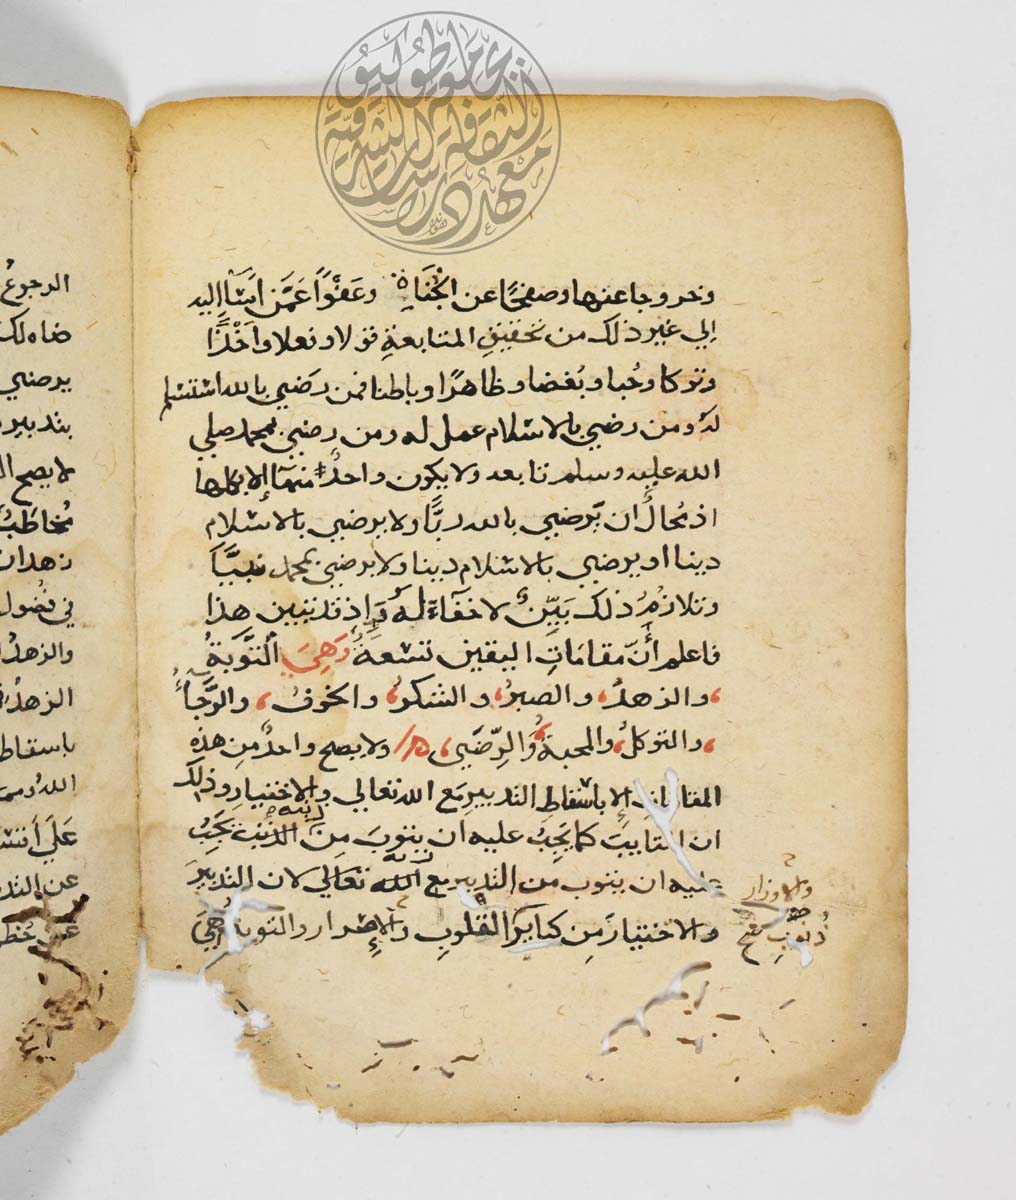 وخروجا عنها وصفحًا عن الجُنَاةِ وعَفْوًا عَمَّن اَسَآ اليه
إلي غير ذلك من تحقيقِ المتابعةِ قولا وفعلا واَخْذًا
وتركا وحُبا وبُغضا وظاهرًا وباطنا فمن رضي بالله استسلم
لهُ ومن رضي بالاسلام عمل له ومن رضي بمحمد صلي
الله عليه وسلم تابعه ولا يكون واحدٌ منها إلا بكلها
اذ مُحالٌ ان يَّرضي بالله ربًّا ولا يرضي بالاسلام
دينا او يرضي بالاسلام دينا ولا يرضي بمحمد نبيًّا
وتلازمُ ذلك بَيِّنٌ لا خفآءَ لهُ وَإذ قد تبين هذا
فاعلم أنّ مقامَاتِ اليقين تسعةٌ وَهِيَ التَّوبَةُ
، والزهدُ، والصبرُ، والشكرُ، والخوفُ، والرَّجَآءُ
، والتوكلُ، والمحبةُ، والرِّضَي، ولا يصح واحدٌ مِن هذه
المقاماتِ إلا باسقاطِ التدبيرِ مَع الله تعالي والاختيارِ وذلك
ان التايبَ كما يَجِبُ عليه ان يتوبَ مِن الذنب يَجِبُ
عليه ان يتوب مِن التدبيرِ مع الله تعالي لان التدبيرَ
والاختيارَ مِن كبايرِ القلوبِ والاِسرارِ والتوبةُ هِيَ
والاوزار
ذنوبِ صح
الرجوعُ
يرضي
لا يصح
مُخاطَبٌ
والزهدُ
باسقاط
معهد الثقافة والدراسات الشرقية